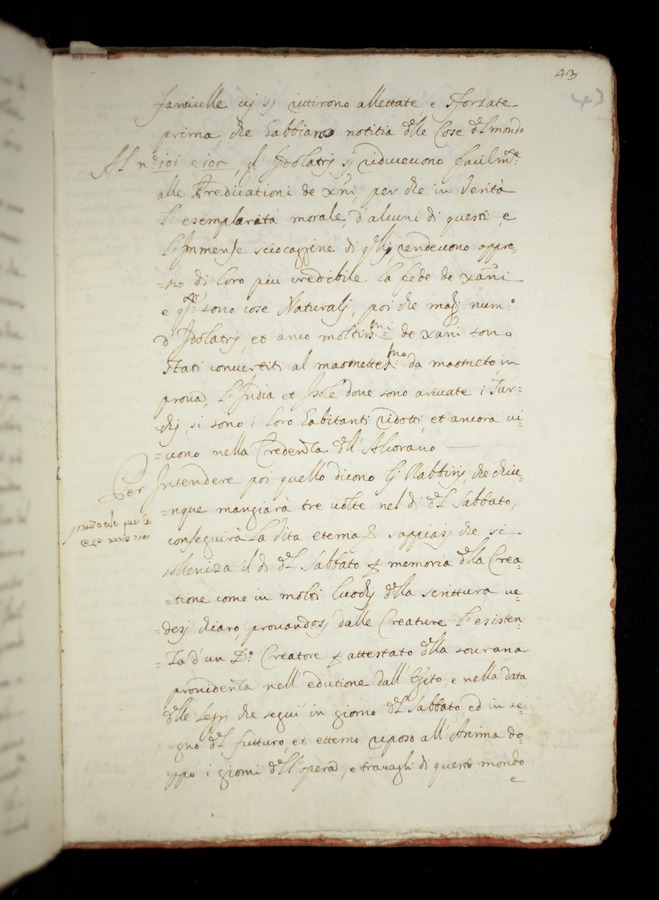 43
43
fanciulle vi si ritirono allettate e sforzate
prima che habbiano notitia delle Cose del mondo
Al n.º 101 e 102, gl' Idolatrj si riducevono facilm.te
alle Predicationi de xni, per che in verità
l'esemplarità morale, d'alcuni di questi, e
l'Immense sciocagine di q.lli, rendevono appre=
=so di loro più credibile la fede de xani
e q.sto sono cose Naturalj, poi che magj num.º
d'Idolatrj, et anco moltiss.mi de xani sono
stati convertiti al maomettesmo da maometo, in
prova, l'India et Isole dove sono arivate i Tur=
chj, si sono i loro habitanti ridotti et ancora vi=
=vono nella Credenza dell' Alcorano
Per Intendere poi quello dicono li Rabbinj, che chiu=
=nque mangiarà tre volte nel di del Sabbato,
conseguirà la Vita eterna, sappiasj che si
solleniza il di del Sabbato p memoria della Crea=
=tione come in molti luochj della scrittura ve=
=desj chiaro provandosj dalle Creature l'esisten=
=za d'un D.º Creatore p attestato della sovrana
providenza nell' edutione dall' Egito, e nella data
delle leggj che seguì in giorno del Sabbato ed in se=
=gno del futturo, et etterno riposo all' Anima do=
=ppo i giorni dell' opera, e travagli di questo mondo
e